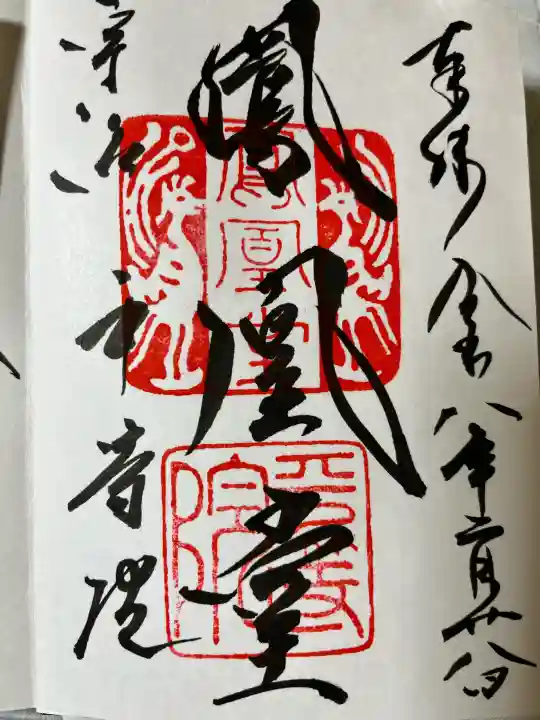 奉拝 令和八年二月廿八日
鳳凰堂
宇治 平等院
鳳凰堂
平等院